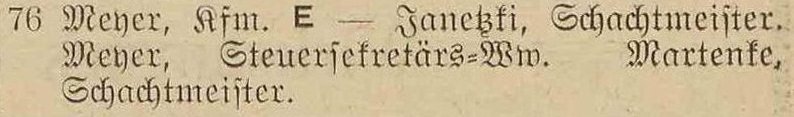 76 Meyer, Kfm. E — Janetzki, Schachtmeister.
Meyer, Steuersekretärs-Ww. Martenke,
Schachtmeister.